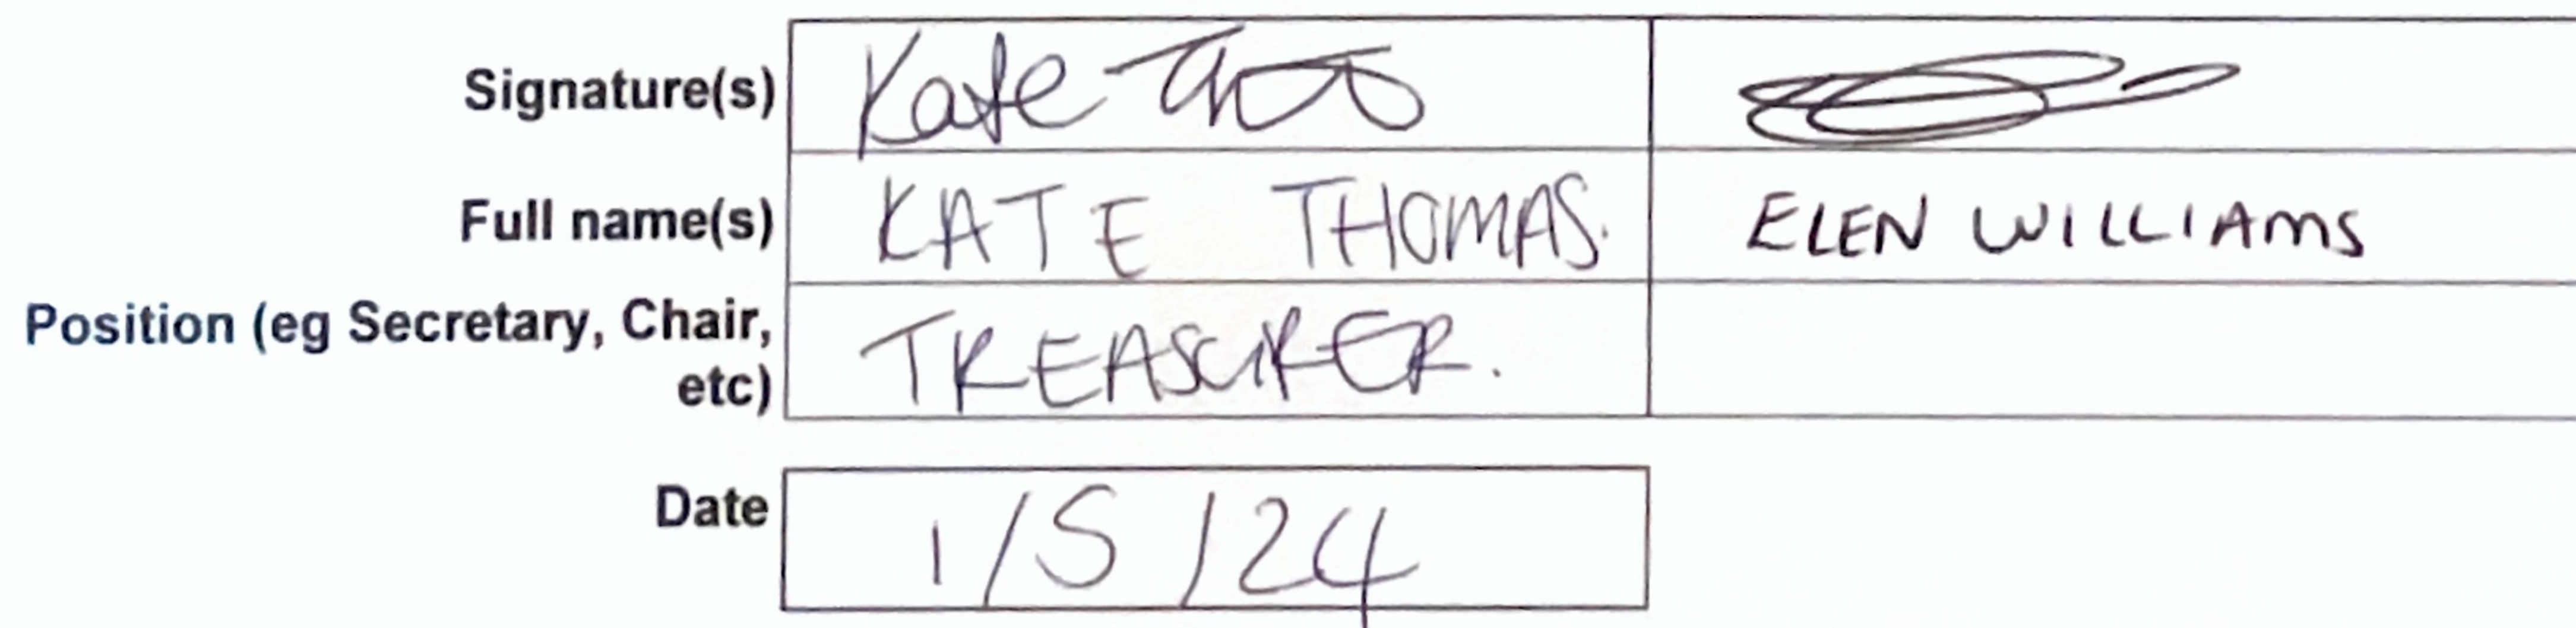 Signature(s) Kate Tho
Full name(s) KATE THOMAS. ELEN WILLIAMS
Position (eg Secretary, Chair,
etc) TREASURER.
Date 1/5/24